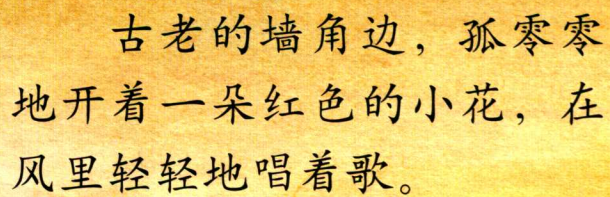 古老的墙角边，孤零零
地开着一朵红色的小花，在
风里轻轻地唱着歌。